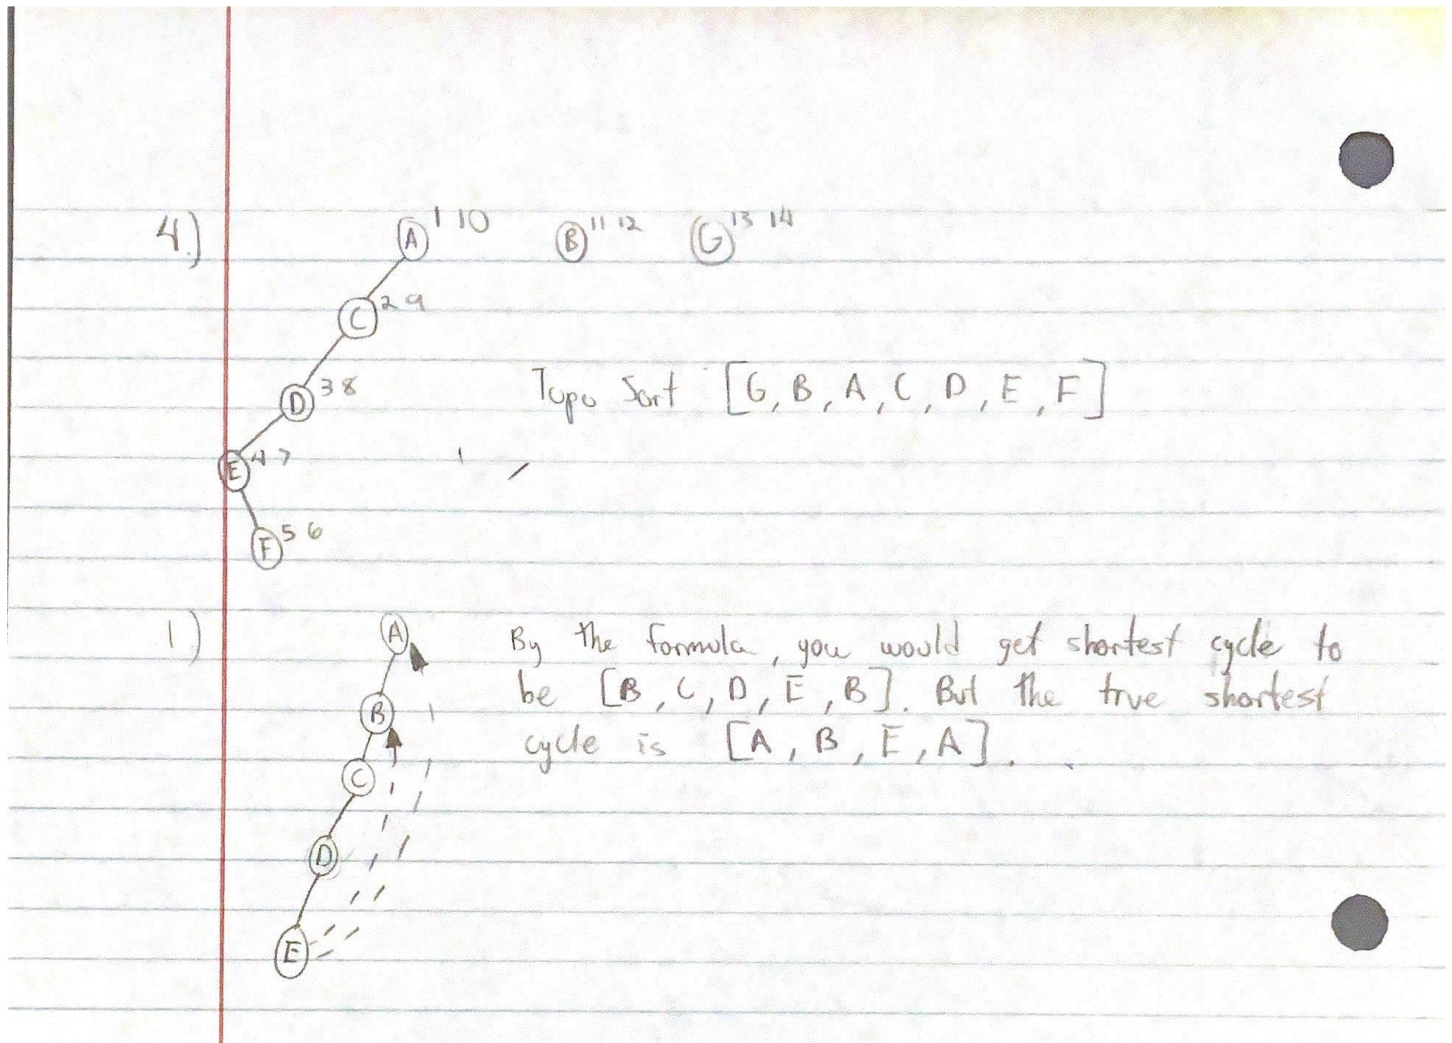 4.) A 1 10 B 11 12 G 13 14
C 2 9
D 3 8 Topo Sort [G, B, A, C, D, E, F]
E 4 7
F 5 6
1) A By the formula, you would get shortest cycle to
B be [B, C, D, E, B]. But the true shortest
C cycle is [A, B, E, A].
D
E